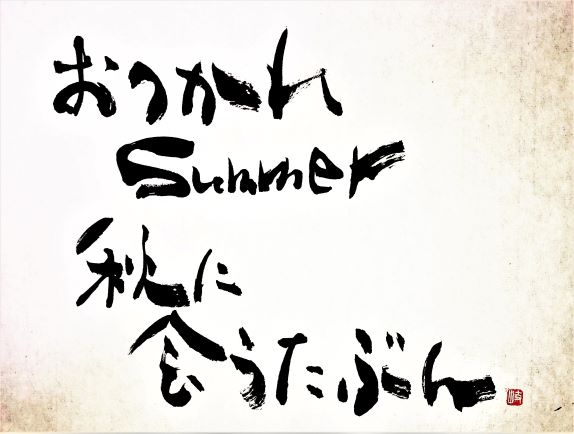 おつかれ
Summer
秋に
会うたぶん